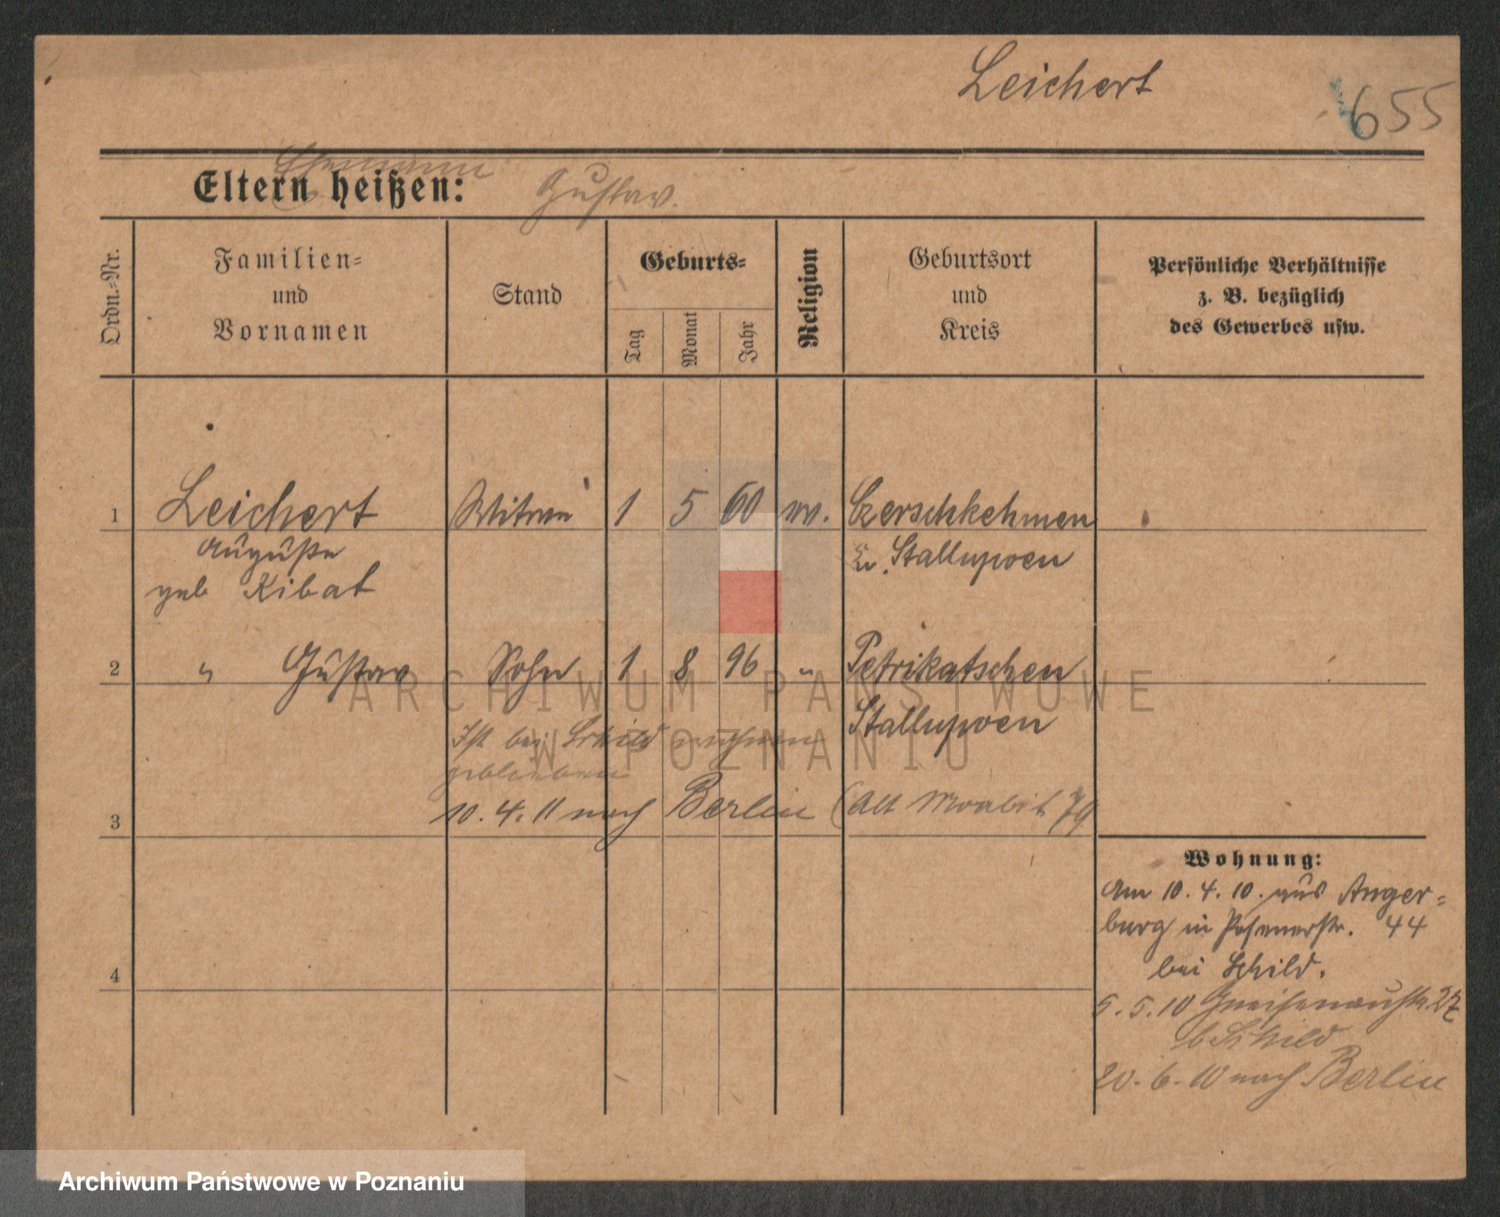 Leichert
655
Ehemann
Eltern heißen: Gustav.
Ordn.-Nr.
Familien-
und
Vornamen
Stand
Geburts-
Tag
Monat
Jahr
Religion
Geburtsort
und
Kreis
Persönliche Verhältnisse
z. B. bezüglich
des Gewerbes usw.
1 Leichert Witwe 1 5 60 ev. Czerschkehmen
Auguste Kr. Stallupoen
geb Kibat
2 " Gustav Sohn 1 8 96 " Petrikatschen
Stallupoen
Ist bei Schild wohnen
geblieben
3 10. 4. 11 nach Berlin (Alt Moabit 79
Wohnung:
Am 10. 4. 10. aus Anger-
burg in Posenerstr. 44
bei Schild.
4
5. 5. 10 Gneisenaustr. 27
b Schild
20. 6. 10 nach Berlin
ARCHIWUM PAŃSTWOWE
W POZNANIU
Archiwum Państwowe w Poznaniu